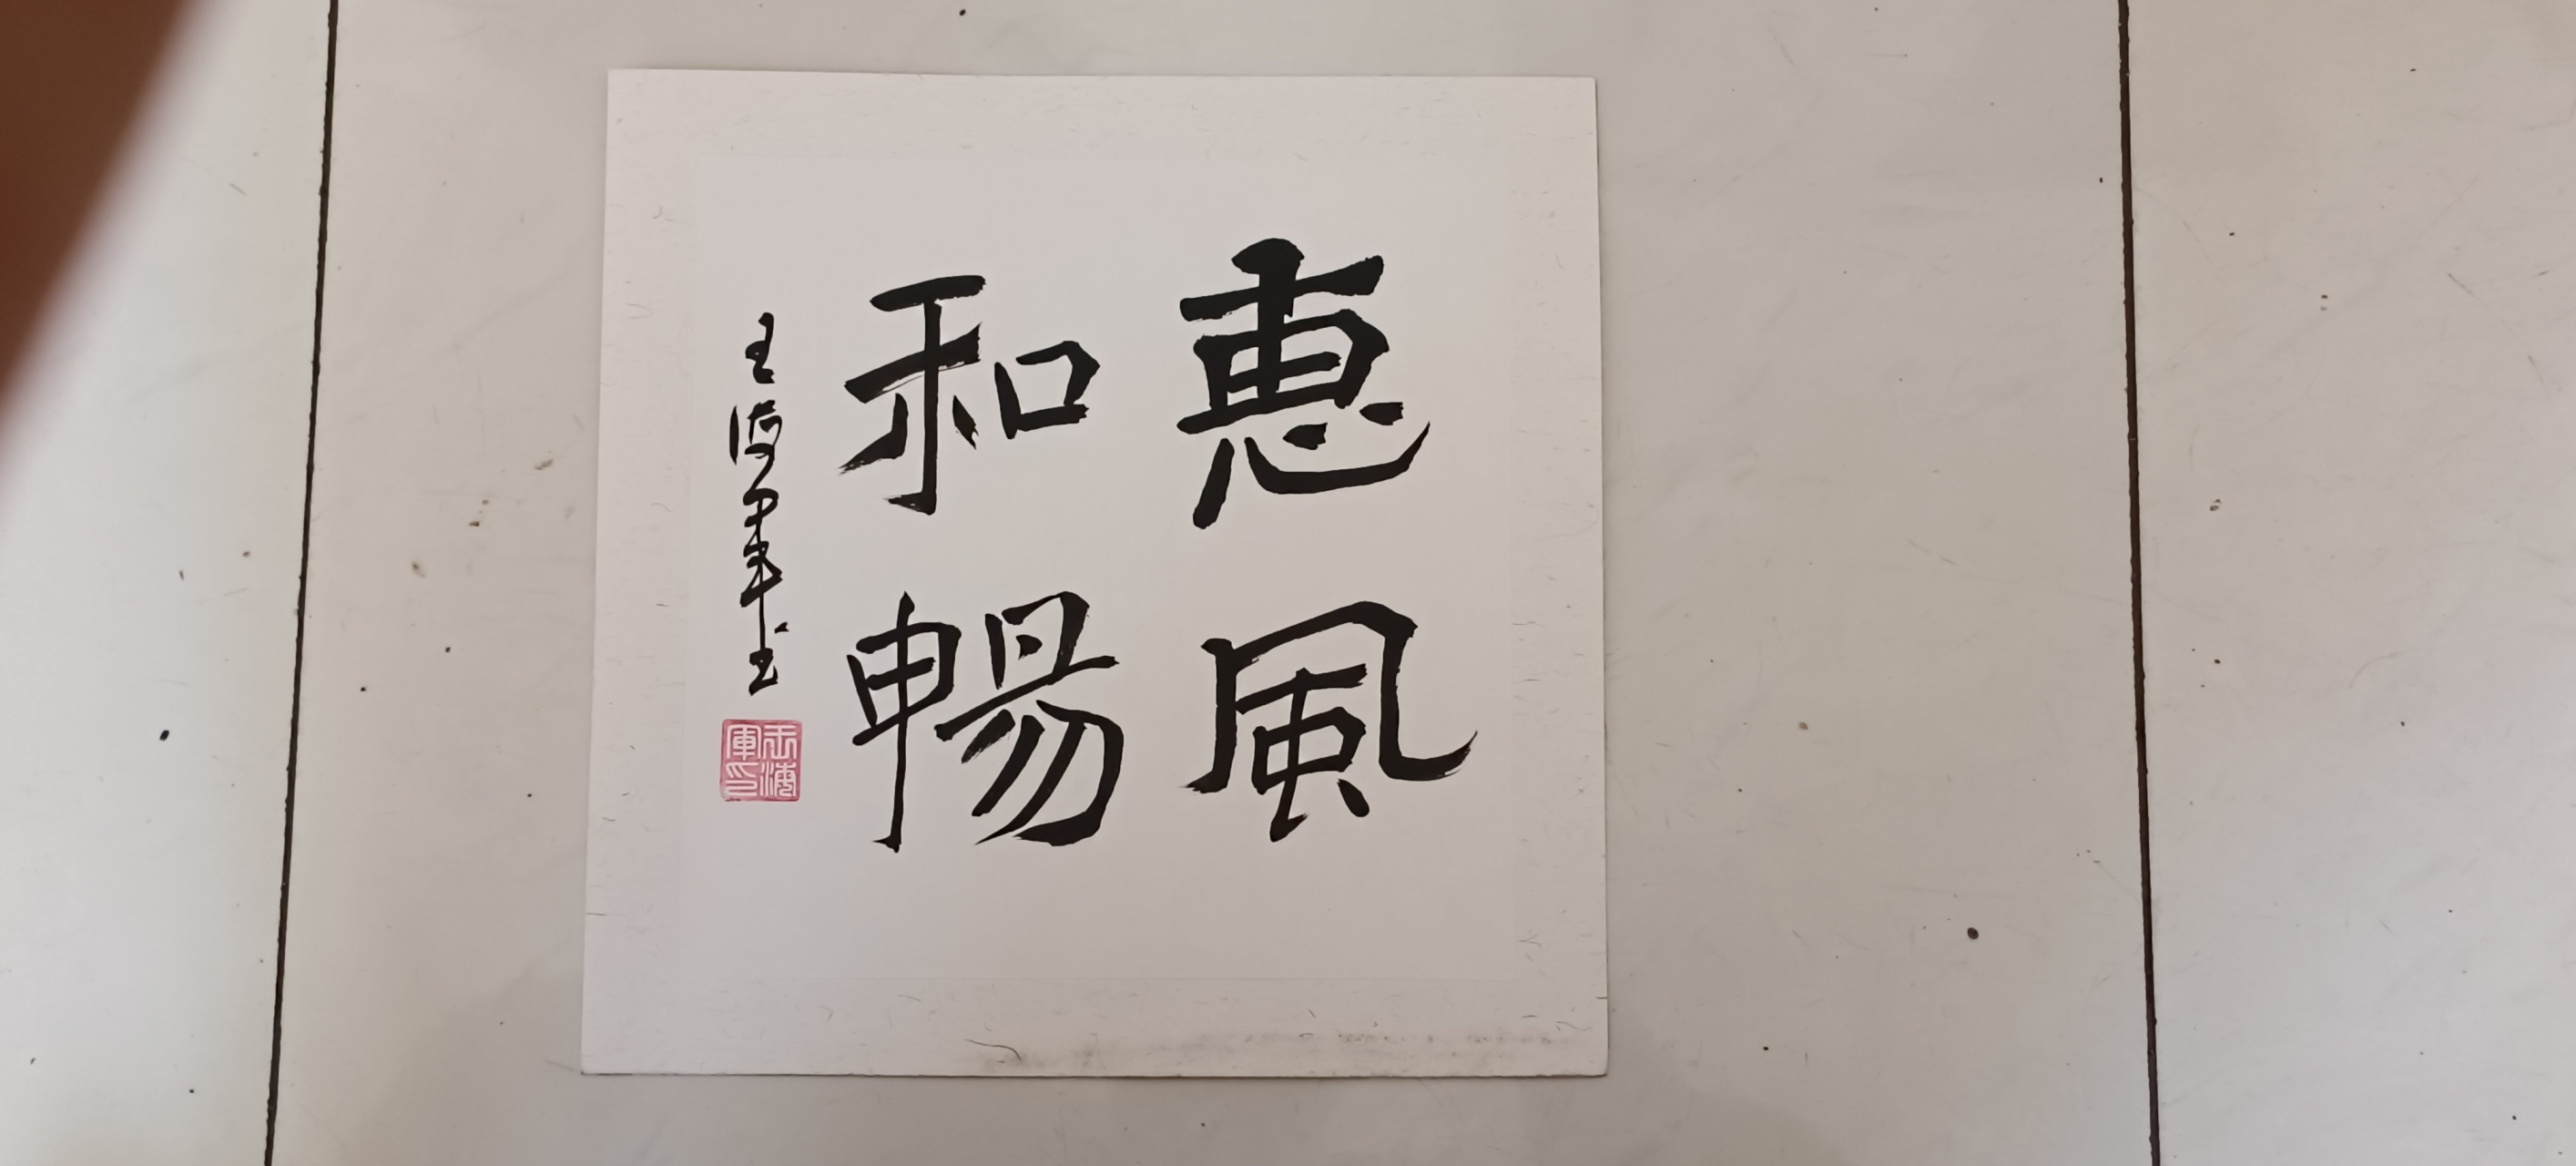 惠風
和暢
王海軍书
王海軍印